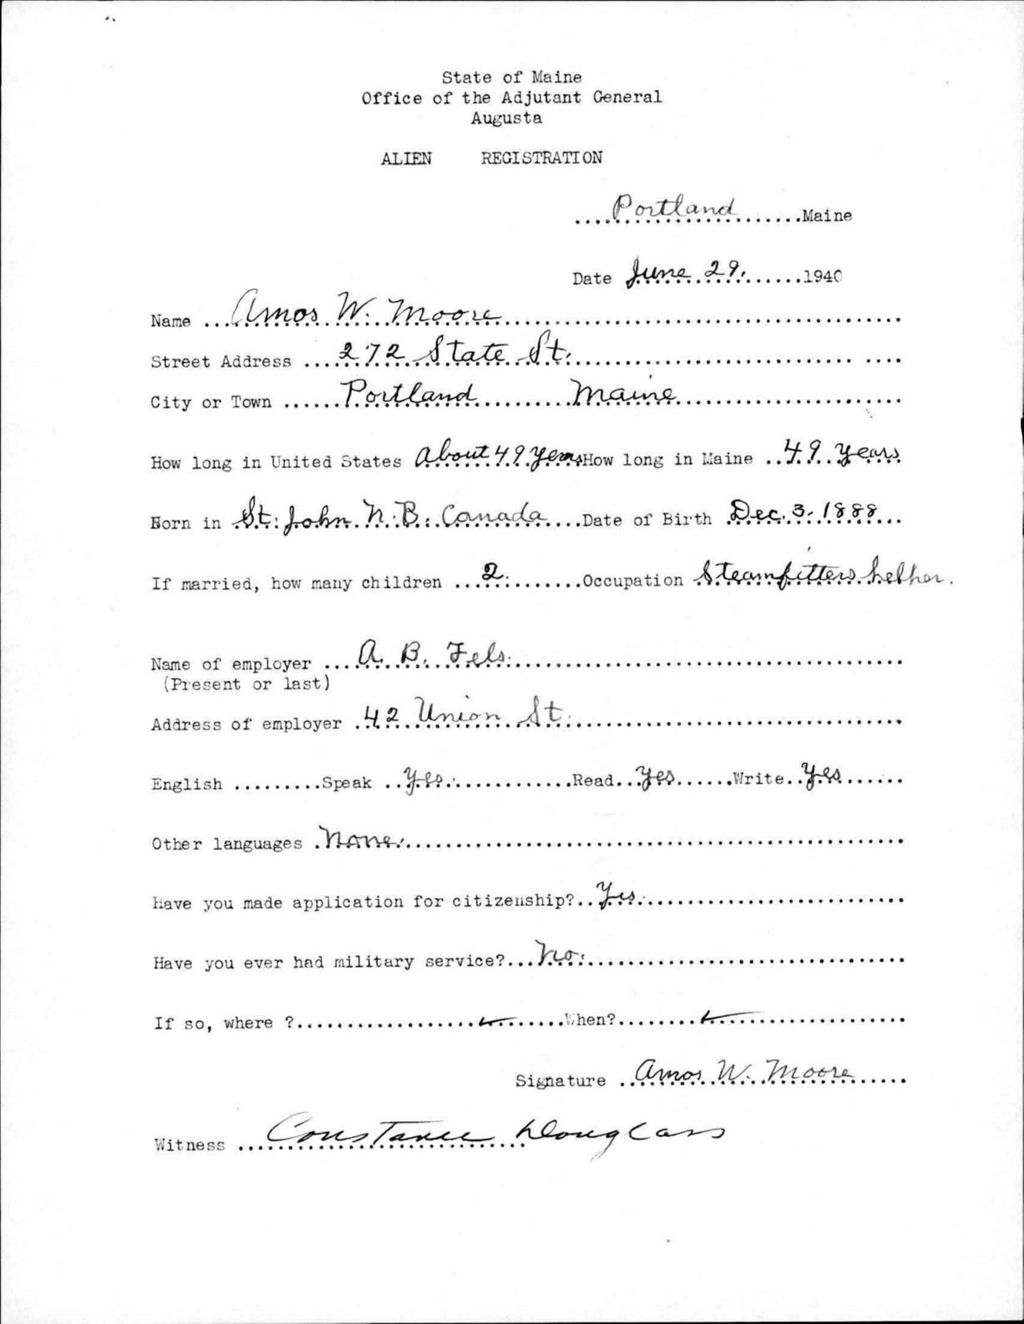 State of Maine
Office of the Adjutant General
Augusta
ALIEN REGISTRATION
Portland Maine
Date June 29, 1940
Name Amos W. Moore
Street Address 272 State St.
City or Town Portland Maine
How long in United States About 49 years How long in Maine 49 years
Born in St. John N.B. Canada Date of Birth Dec. 3, 1888
If married, how many children 2. Occupation Steamfitters helper.
Name of employer A. B. Fels.
(Present or last)
Address of employer 42 Union St.
English Speak Yes. Read Yes Write Yes
Other languages None.
Have you made application for citizenship? Yes.
Have you ever had military service? No.
If so, where ? When?
Signature Amos W. Moore
Witness Constance Douglass